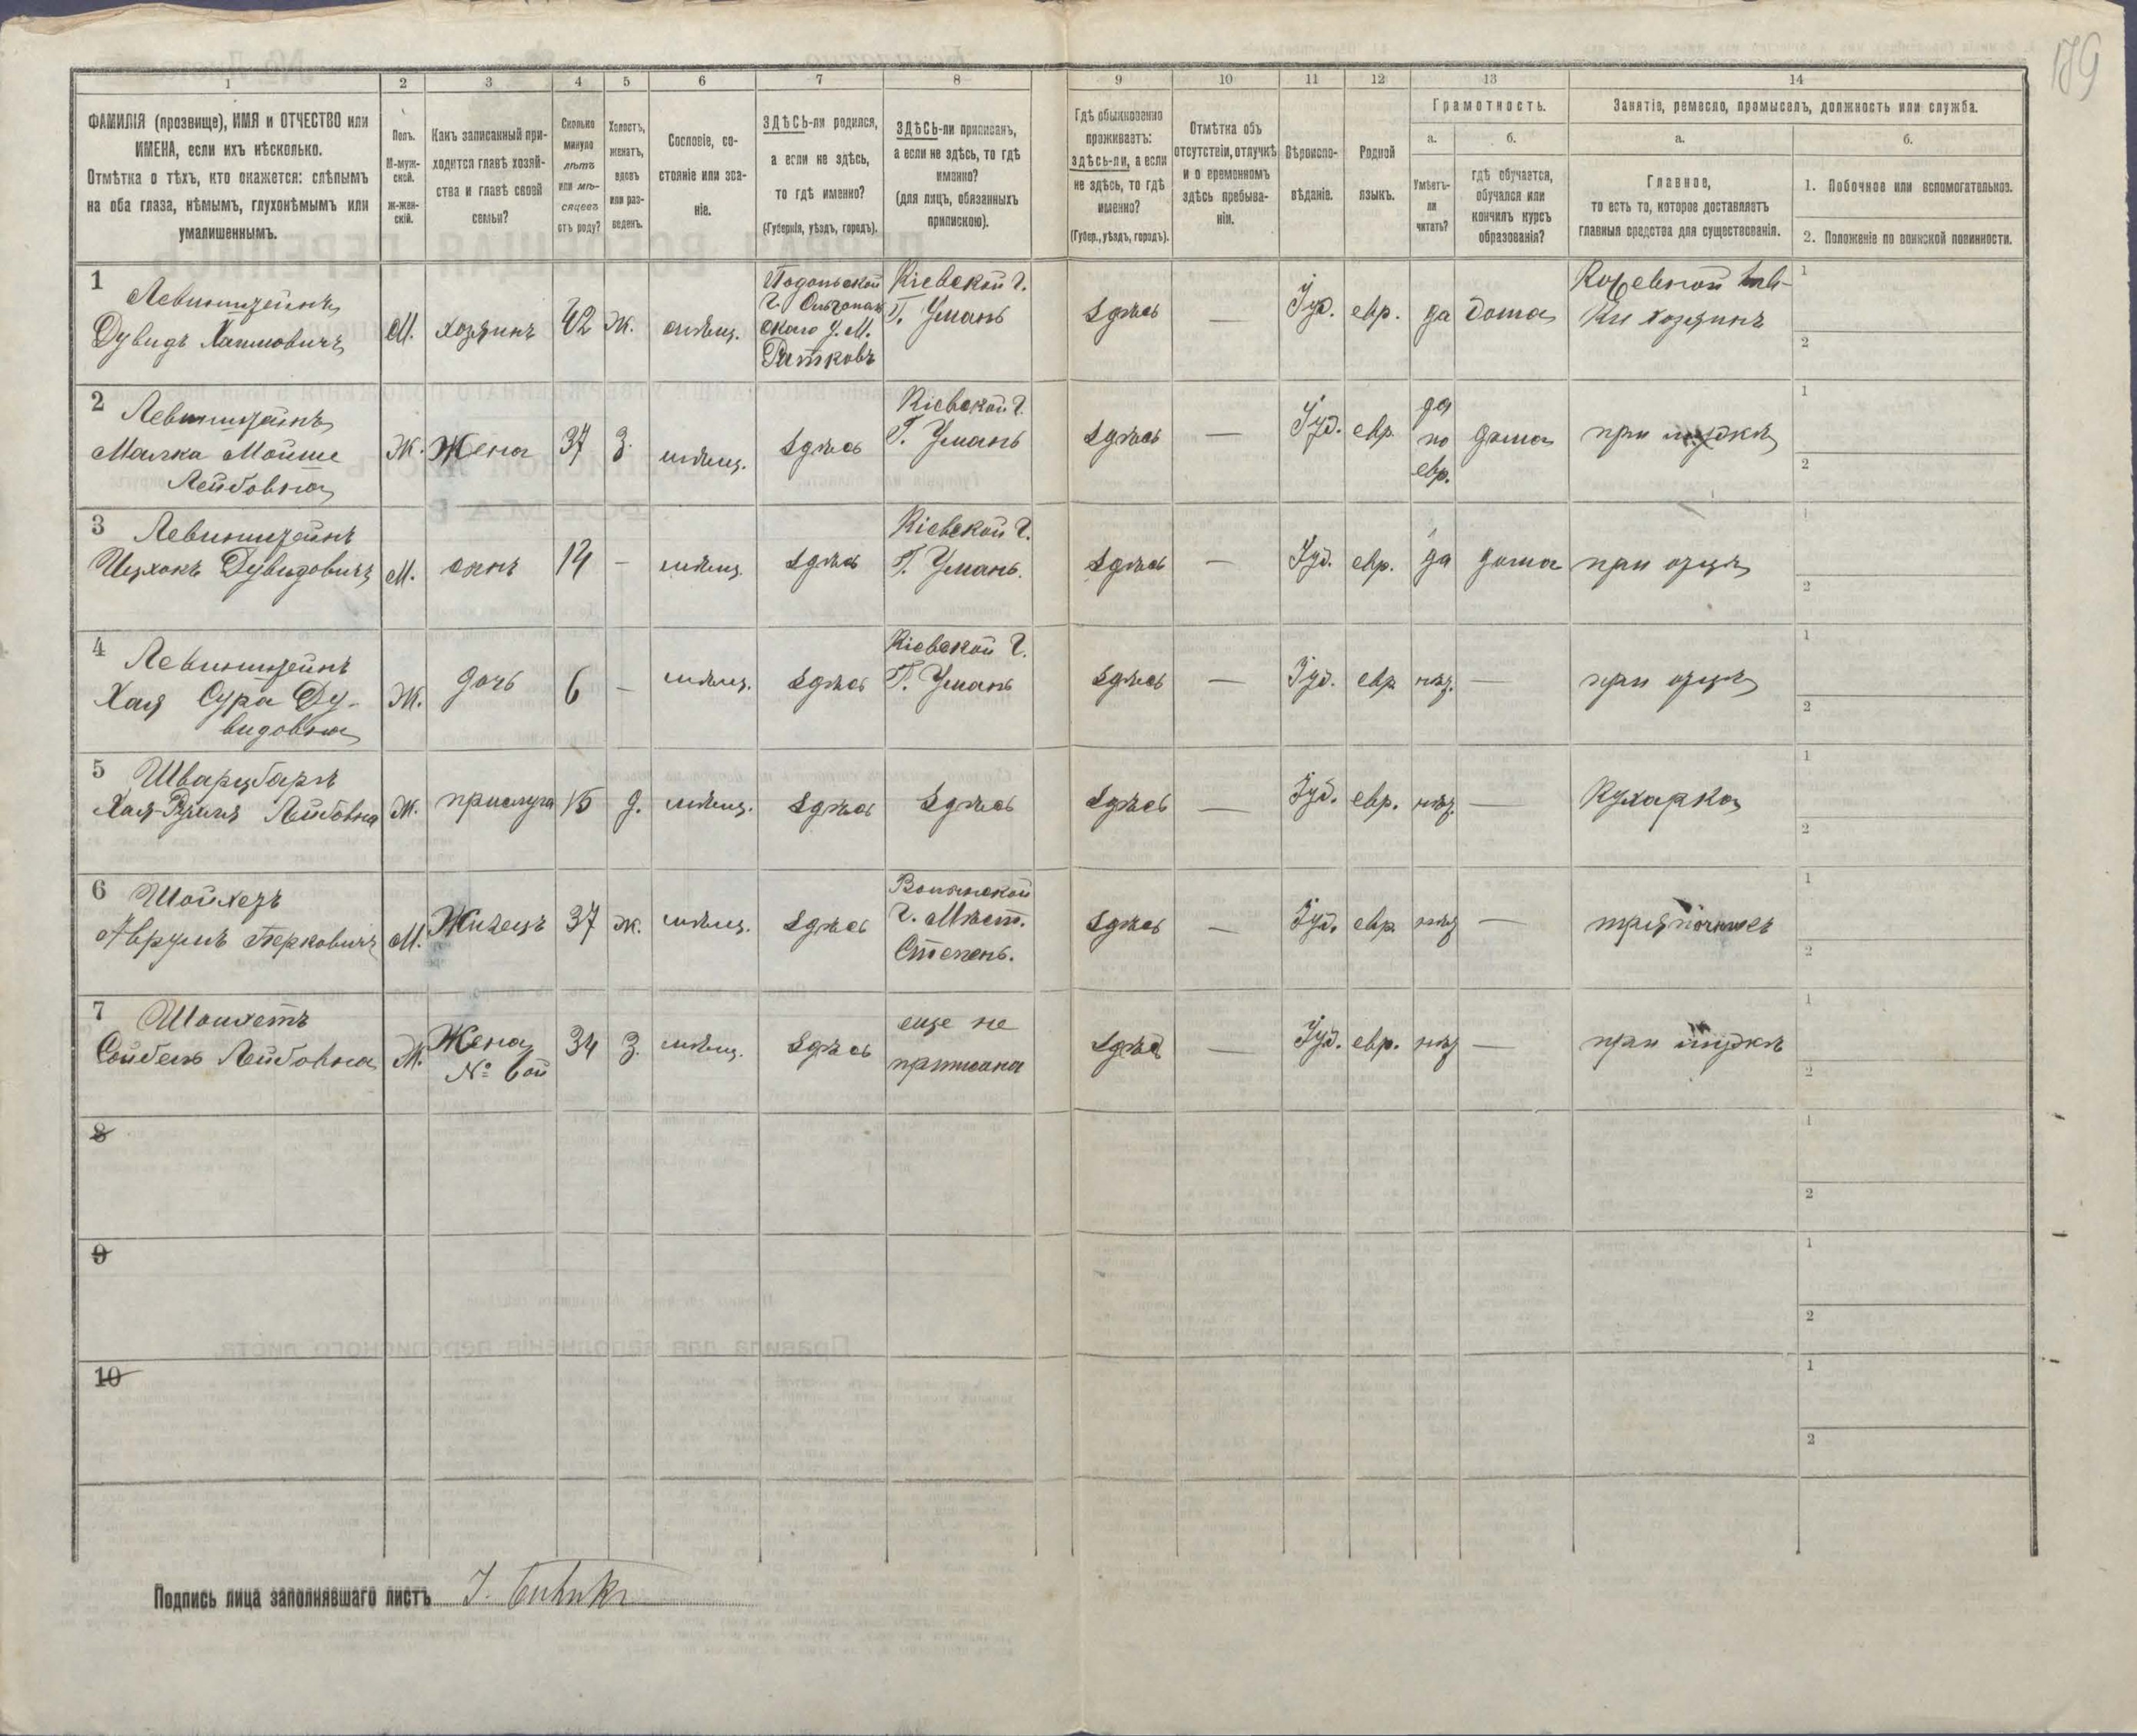 179
1
2
3
4
5
6
7
8
9
10
11
12
13
14
ФАМИЛІЯ (прозвище), ИМЯ и ОТЧЕСТВО или
ИМЕНА, если ихъ нѣсколько.
Отмѣтка о тѣхъ, кто окажется: слѣпымъ
на оба глаза, нѣмымъ, глухонѣмымъ или
умалишеннымъ.
Полъ.
М-муж-
ской.
Ж-жен-
скій.
Какъ записанный при-
ходится главѣ хозяй-
ства и главѣ своей
семьи?
Сколько
минуло
лѣтъ
или мѣ-
сяцевъ
отъ роду?
Холостъ,
женатъ,
вдовъ
или раз-
веденъ.
Сословіе, со-
стояніе или зва-
ніе.
ЗДѢСЬ-ли родился,
а если не здѣсь,
то гдѣ именно?
(Губернія, уѣздъ, городъ).
ЗДѢСЬ-ли приписанъ,
а если не здѣсь, то гдѣ
именно?
(для лицъ, обязанныхъ
припискою).
Гдѣ обыкновенно
проживаетъ:
здѣсь-ли, а если
не здѣсь, то гдѣ
именно?
(Губер., уѣздъ, городъ).
Отмѣтка объ
отсутствіи, отлучкѣ
и о временномъ
здѣсь пребыва-
ніи.
Вѣроиспо-
вѣданіе.
Родной
языкъ.
Грамотность.
а.
Умѣетъ-
ли
читать?
б.
гдѣ обучается,
обучался или
кончилъ курсъ
образованія?
Занятіе, ремесло, промыселъ, должность или служба.
а.
Главное,
то есть то, которое доставляетъ
главныя средства для существованія.
б.
1. Побочное или вспомогательное.
2. Положеніе по воинской повинности.
1
Левинштейнъ
Дувидъ Хаимовичъ
М.
хозяинъ
42
Ж.
мѣщ.
Подольской
г. Ольгополь
скаго у. М.
Кіевской г.
Г. Умань
Здѣсь
—
Іуд.
евр.
да
дома
хозяинъ
1
2
2
Левинштейнъ
Малка Мойше
Лейбовна
Ж.
Жена
37
З.
мѣщ.
Здѣсь
Кіевской г.
Г. Умань
Здѣсь
—
Іуд.
евр.
да
по
евр.
дома
при мужѣ
1
2
3
Левинштейнъ
Ицхокъ Дувидовичъ
М.
сынъ
14
–
мѣщ.
Здѣсь
Кіевской г.
Г. Умань.
Здѣсь
—
Іуд.
евр.
да
дома
при отцѣ
1
2
4
Левинштейнъ
Хая Сура Ду-
видовна
Ж.
дочь
6
–
мѣщ.
Здѣсь
Кіевской г.
Г. Умань
Здѣсь
—
Іуд.
евр.
нѣт.
—
при отцѣ
1
2
5
Шварцбаргъ
Лейбовна
Ж.
прислуга
15
д.
мѣщ.
Здѣсь
Здѣсь
Здѣсь
—
Іуд.
евр.
нѣт.
—
Кухарка
1
2
6
Шойхетъ
Аврумъ Берковичъ
М.
Жилецъ
37
Ж.
мѣщ.
Здѣсь
Волынской
г. Мѣст.
Степень.
Здѣсь
—
Іуд.
евр.
нѣт
—
тряпочникъ
1
2
7
Шойхетъ
Сойбель Лейбовна
Ж.
Жена
№ 6ой
34
З.
мѣщ.
Здѣсь
еще не
приписана
Здѣсь
—
Іуд.
евр.
нѣт
—
при мужѣ
1
2
8
1
2
9
1
2
10
1
2
Подпись лица заполнявшаго листъ